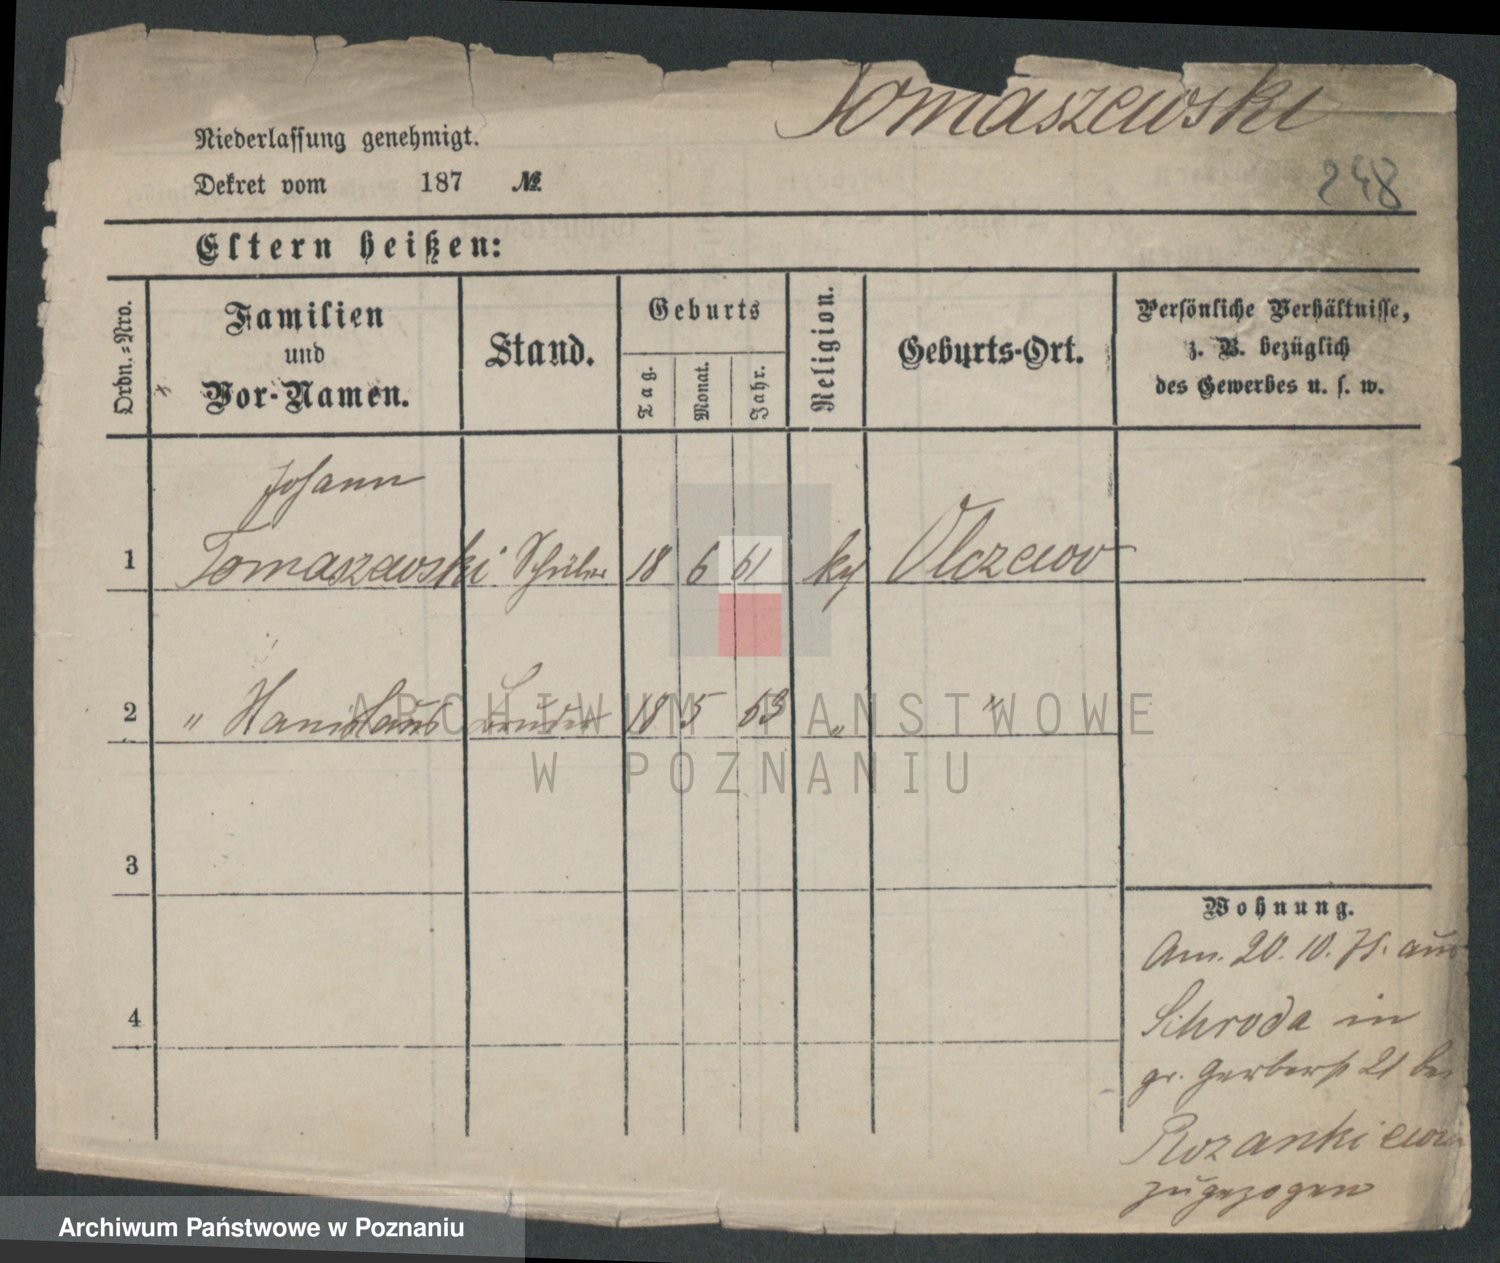 Tomaszewski
Niederlassung genehmigt.
Dekret vom 187 №
248
Eltern heißen:
Ordn.=Nro.
Familien
und
Vor-Namen.
Stand.
Geburts
Tag.
Monat.
Jahr.
Religion.
Geburts-Ort.
Persönliche Verhältnisse,
z. B. bezüglich
des Gewerbes u. s. w.
Johann
1 Tomaszewski Schüler 18 6 61 Olczewo
2 " Stanislaus Bruder 18 5 63 " "
3
4
Wohnung.
Am. 20. 10. 75. aus
Schroda in
gr. Gerberst 21 bei
zugezogen
ARCHIWUM PAŃSTWOWE
W POZNANIU
Archiwum Państwowe w Poznaniu